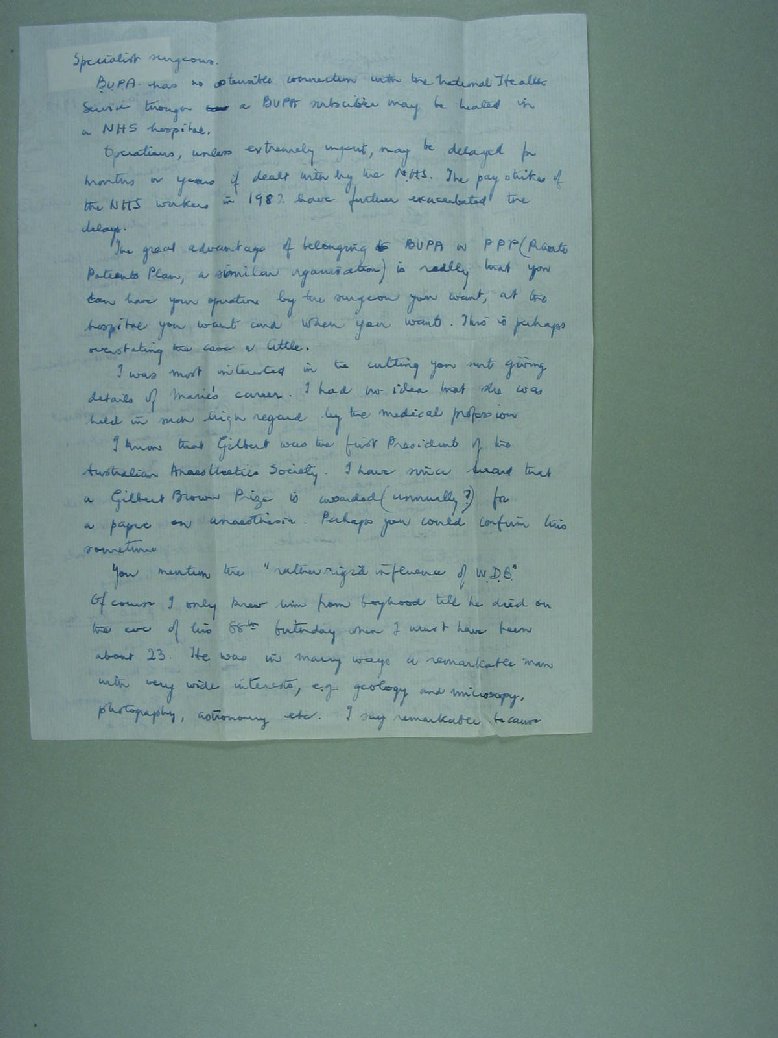 Specialist surgeons.
BUPA has no ostensible connection with the National Health
Service though a BUPA subscriber may be treated in
a NHS hospital.
Operations, unless extremely urgent, may be delayed for
months or years if dealt with by the NHS. The pay strikes of
the NHS workers in 1982 have further exacerbated the
delays.
The great advantage of belonging to BUPA or PPP (Private
Patients Plan, a similar organisation) is really that you
can have your operation by the surgeon you want, at the
hospital you want and when you want. This is perhaps
overstating the case a little.
I was most interested in the cutting you sent giving
details of Marie's career. I had no idea that she was
held in such high regard by the medical profession
I know that Gilbert was the first President of the
Australian Anaesthetics Society. I have since heard that
a Gilbert Brown Prize is awarded (annually?) for
a paper on anaesthesia. Perhaps you could confirm this
sometime
You mention the "rather rigid influence of W.D.B."
Of course I only knew him from boyhood till he died on
the eve of his 88th birthday when I must have been
about 23. He was in many ways a remarkable man
with very wide interests, e.g. geology and microscopy,
photography, astronomy etc. I say remarkable because